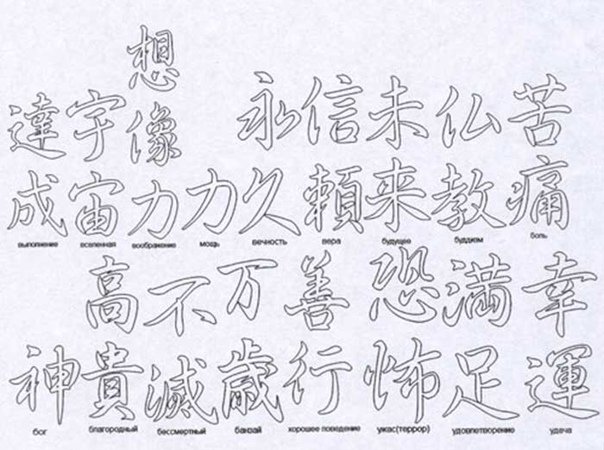 達成
выполнение
宇宙
вселенная
想像力
воображение
力
мощь
永久
вечность
信頼
вера
未来
будущее
仏教
буддизм
苦痛
боль
神
бог
高貴
благородный
不滅
бессмертный
万歳
банзай
善行
хорошее поведение
恐怖
ужас(террор)
満足
удовлетворение
幸運
удача